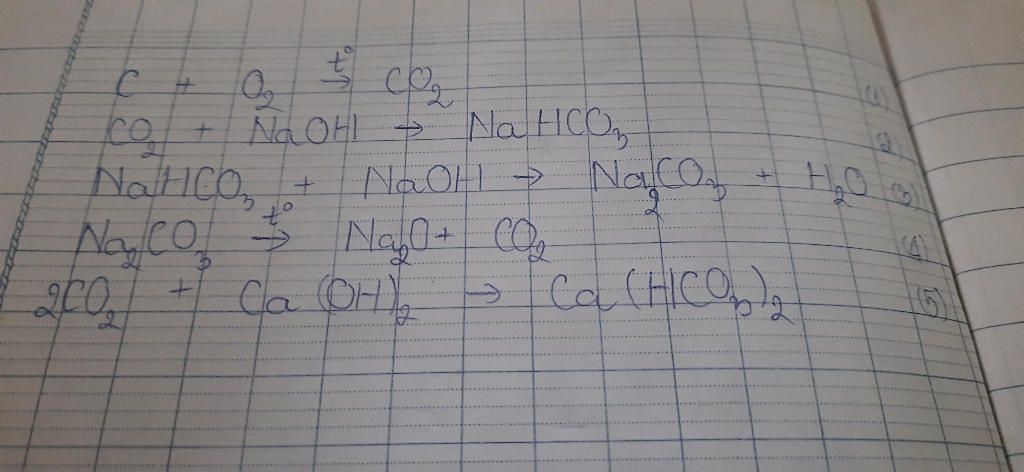 C + O₂ t°→ CO₂ (1)
CO₂ + NaOH → NaHCO₃ (2)
NaHCO₃ + NaOH → Na₂CO₃ + H₂O (3)
Na₂CO₃ t°→ Na₂O + CO₂ (4)
2CO₂ + Ca(OH)₂ → Ca(HCO₃)₂ (5)